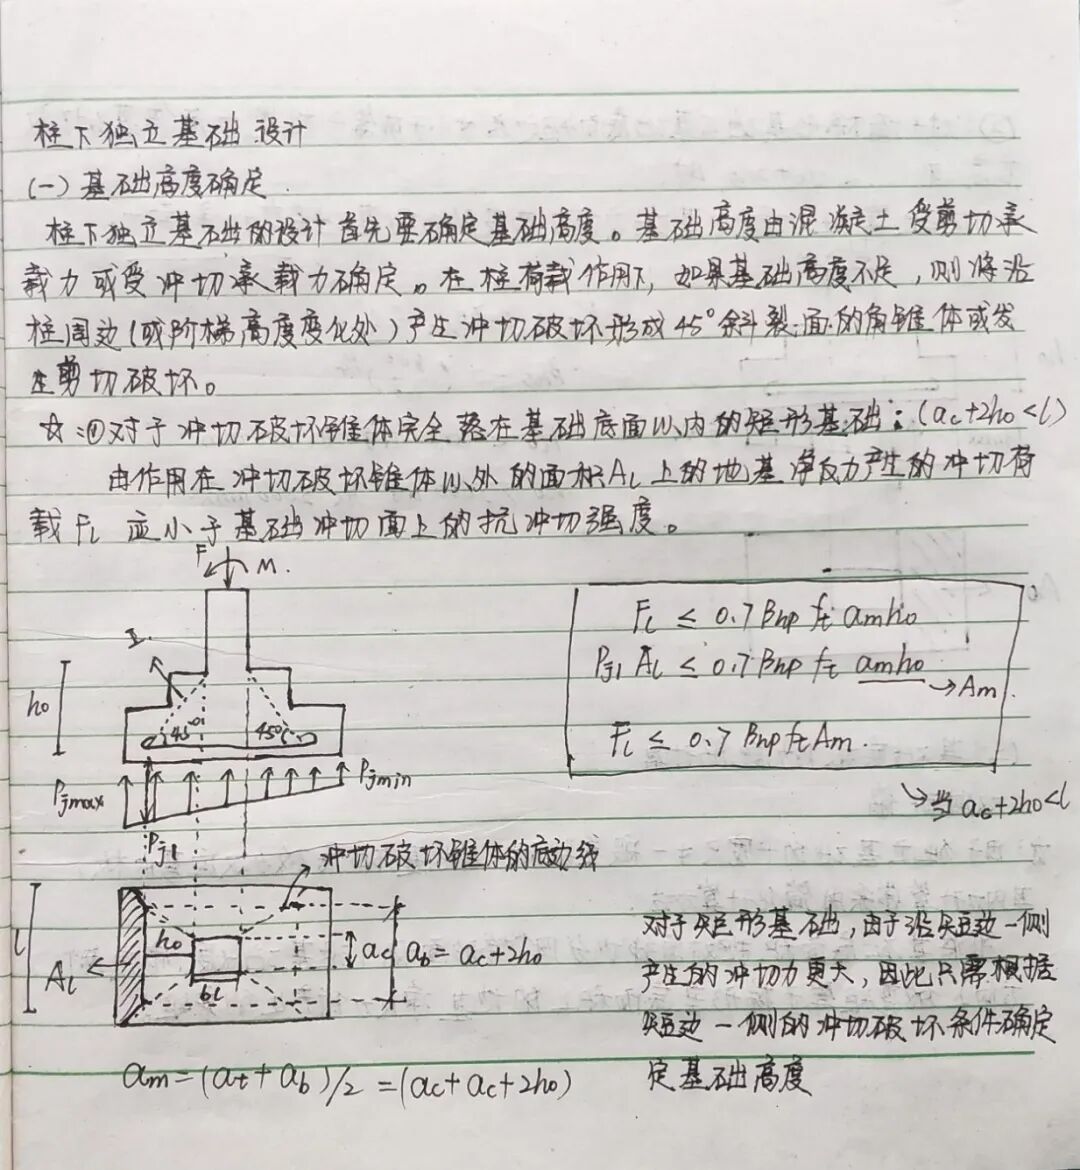 柱下独立基础设计
(一)基础高度确定
柱下独立基础的设计首先要确定基础高度。基础高度由混凝土受剪切承
载力或受冲切承载力确定。在柱荷载作用下,如果基础高度不足,则将沿
柱周边(或阶梯高度变化处)产生冲切破坏形成45°斜裂面的角锥体或发
生剪切破坏。
☆:①对于冲切破坏锥体完全落在基础底面以内的矩形基础:(ac+2h0<l)
由作用在冲切破坏锥体以外的面积Al上的地基净反力产生的冲切荷
载Fl应小于基础冲切面上的抗冲切强度。
F M.
I.
h0
45° 45°
Pjmax Pjmin
Pj1
Fl ≤ 0.7 βhp ft am h0
Pj1 Al ≤ 0.7 βhp ft am h0
→ Am.
Fl ≤ 0.7 βhp ft Am.
↳当 ac+2h0<l
冲切破坏锥体的底边线
l
Al
h0
bc
ac
ab = ac+2h0
am=(at+ab)/2 =(ac+ac+2h0)
对于矩形基础,由于沿短边一侧
产生的冲切力更大,因此只需根据
短边一侧的冲切破坏条件确定
定基础高度